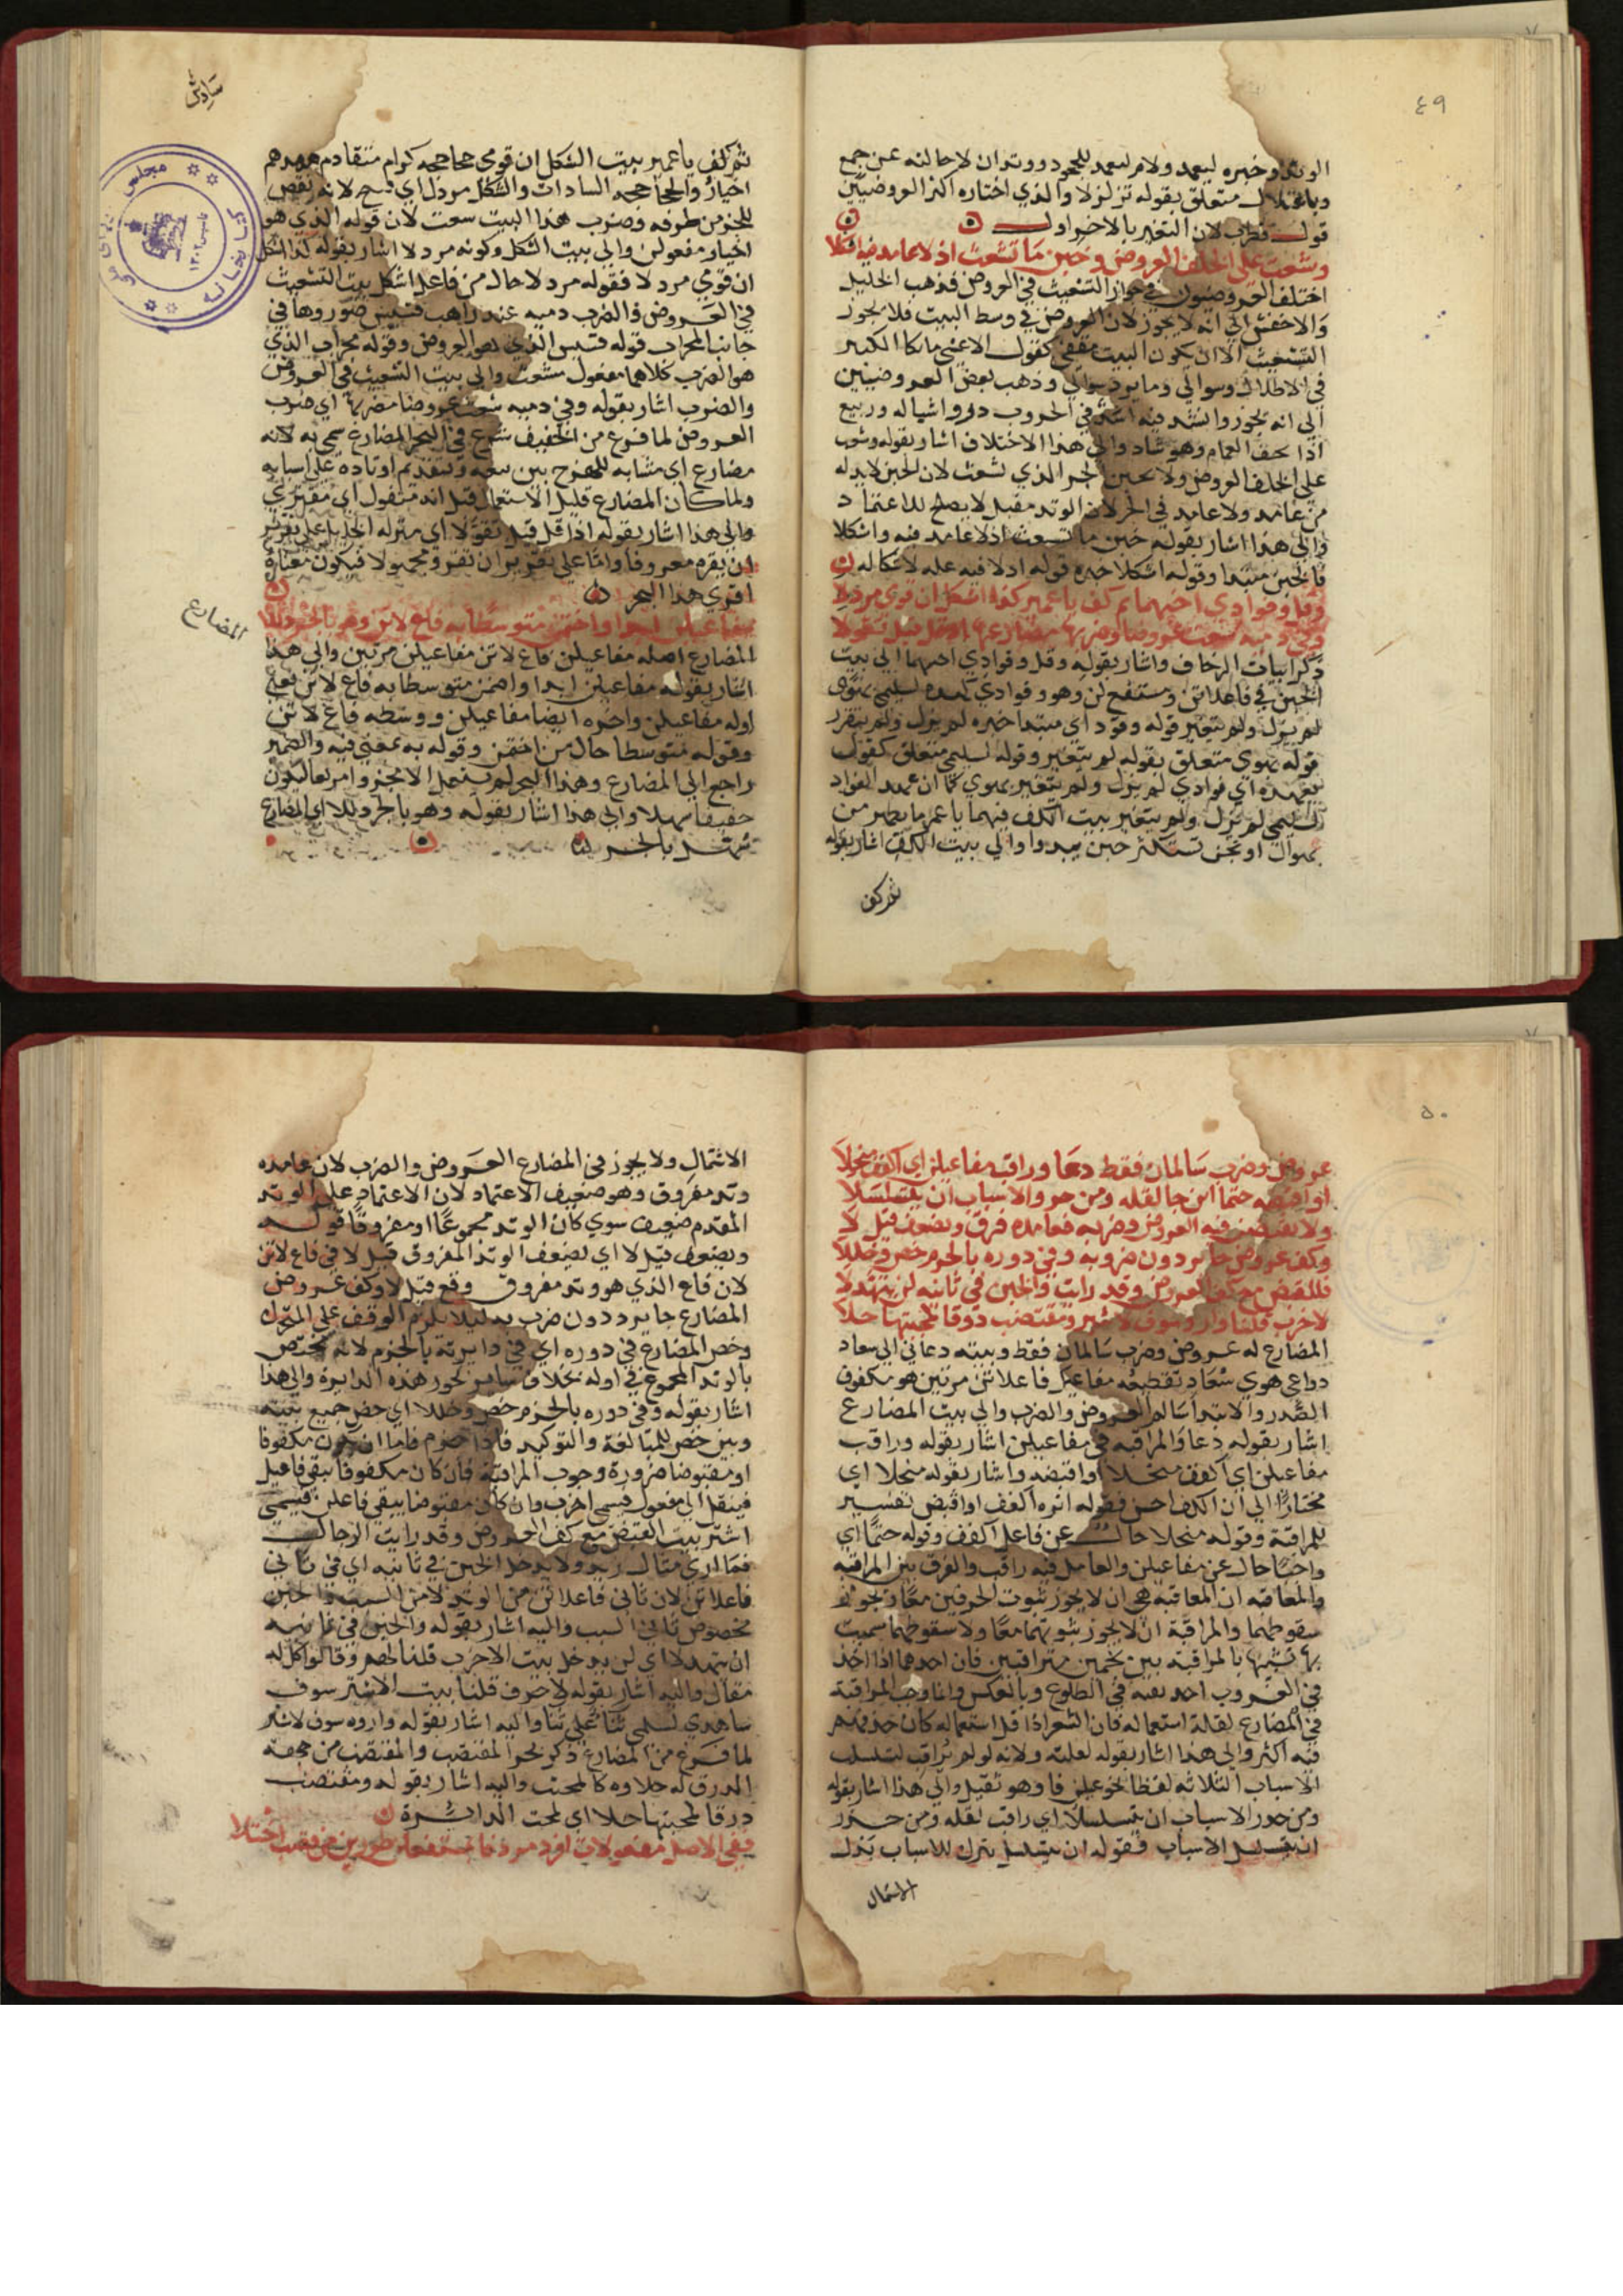 ٤٩
الوتد وخبره ليعمد ولام ليعمد للجحود ووتد ان لاحالته عن جمع
متعلق بقوله تزلزلا والذي اختاره اكثر العروضيين
قول قطرب لان التغير بالاخير اولى
وشعث على الخلف العروض وخبن ما تشعث اذ لا عامد فيه اشكلا
اختلف العروضيون في جواز التشعيث في العروض فذهب الخليل
والاخفش الى انه لا يجوز لان العروض في وسط البيت فلا يجوز
التشعيث الا ان يكون البيت مقفى كقول الاعشى ما بكا الكبير
في الاطلال وسوالي وما يرد سوالي وذهب بعض العروضيين
الى انه يجوز وانشد فيه اسد في الحروب ذو اشباله وربيع
اذا يجف الغمام وهو شاذ والى هذا الاختلاف اشار بقوله وشعث
على الخلف العروض ولا يخبن الجزء الذي تشعث لان الخبن لا بد له
من عامد ولا عامد في الجزء لان الوتد مقبل لا يصلح للاعتماد
والى هذا اشار بقوله خبن ما تشعث اذ لا عامد فيه واشكلا
فالخبن مبتدا وقوله اشكلا خبره قوله اذ لا فيه عله لاشكاله
وفا وفوادي اخبهما ثم كف يا عمير كذا اشكل ان قومي مردلا
وفي دميه شعث عروضا وضربها مضارعها اذ قل قبل تقولا
ذكر ابيات الزحاف واشار بقوله وقل وفوادي اخبهما الى بيت
الخبن في فاعلاتن ومستفع لن وهو وفوادي كعهده لسليمى بهوى
لم يزل ولم يتغير قوله وفوادي مبتدا خبره لم يزل ولم يتغير
قوله بهوى متعلق بقوله لم يتغير وقوله لسليمى متعلق كقوله
بعهده اي فوادي لم يزل ولم يتغير بهوى كما ان عهد الفواد
لسليمى لم يزل ولم يتغير بيت الكف فيهما يا عمير ما يظهر من
بهوال او تجن تستكثر حين يبدوا والى بيت الكف اشار بقوله
ثم كف
سادس
ثم كف يا عمير بيت الشكل ان قومي جحاجحه كرام متقادم مجدهم
اخيار والجحاجحه السادات والشكل مردل اي قبيح لانه نقص
للجزء من طرفه وضرب هذا البيت شعث لان قوله الذي هو
اخيار مفعولن والى بيت الشكل وكونه مردلا اشار بقوله كذا اشكل
ان قومي مردلا فقوله مردلا حال من فاعل اشكل بيت التشعيث
في العروض والضرب دميه عند راهب قسيس صوروها في
جانب المحراب قوله قسيس الذي هو العروض وقوله محراب الذي
هو الضرب كلاهما مفعول مشعث والى بيت التشعيث في العروض
والضروب اشار بقوله وفي دميه شعث عروضا مضربها اي ضرب
العروض لما فرغ من الخفيف شرع في البحر المضارع سمي به لانه
مضارع اي مشابه للهزج بين سعه وتقديم اوتاده على اسبابه
ولما كان المضارع قليل الاستعمال قيل انه متقول اي مفتري
والى هذا اشار بقوله اذ قل قيل تقولا اي منزله الخليل على تقدير
ان يقره معروفا واما على تقدير ان تقرو مجهولا فيكون معناه
افترى هذا البحر
مفاعيلن ابدا واختمن متوسطا به فاع لاتن وهو بالجزو ذللا
المضارع
المضارع اصله مفاعيلن فاع لاتن مفاعيلن مرتين والى هذا
اشار بقوله مفاعيلن ابدا واختمن متوسطا به فاع لاتن يعني
اوله مفاعيلن واخره ايضا مفاعيلن ووسطه فاع لاتن
وقوله متوسطا حال من اختمن وقوله به بمعنى فيه والضمير
راجع الى المضارع وهذا البحر لم يستعمل الا مجزوا مربعا ليكون
خفيفا سهلا والى هذا اشار بقوله وهو بالجزو ذللا اي المضارع
سهل بالجزء
كتابخانه مجلس شورای ملی
٥٠
عروض وضرب سالمان فقط دعا وراقب مفاعيلن اي اكفف منجلا
او اقبضه حتما اين جا لقله ومن حوو الاسباب ان يتسلسلا
ولا تقبض فيه العروض وضربه فعامده فرق ويضعف قبل لا
وكف عروض جا بردون ضروبه وفي دوره بالخرم خص وخللا
فللقبض مع كف العروض وقد رايت والخبن في ثانيه لن يتهدلا
لاخرب قلنا واروسوف لاشتر ومقتضب ذوقا لمجتثها حلا
المضارع له عروض وضرب سالمان فقط وبيته دعاني الى سعاد
دواعي هوى سعاد تقطيعه مفاعيل فاعلاتن مرتين هو مكفوف
الصدر والابتدا سالم العروض والضرب والى بيت المضارع
اشار بقوله دعا والمراقبه في مفاعيلن اشار بقوله وراقب
مفاعيلن اي اكفف منجلا او اقبضه واشار بقوله منجلا اي
مختارا الى ان الكف احسن فقوله اثره اكفف او اقبض تفسير
للمراقبة وقوله منجلا حال عن فاعل اكفف وقوله حتما اي
واجبا حال عن مفاعيلن والعامل فيه راقب والفرق بين المراقبه
والمعاقبه ان المعاقبه هي ان لا يجوز ثبوت الحرفين معا ويجوز
سقوطهما والمراقبة ان لا يجوز ثبوتهما معا ولا سقوطهما سميت
بها تشبيها بالمراقبة بين نجمين متراقبين فان احدهما اذا اخذ
في الغروب اخذ رقيبه في الطلوع وبالعكس وانما وجب المراقبة
في المضارع لقلة استعماله فان الشعرا اذا قل استعماله كان حذفهم
فيه اكثر والى هذا اشار بقوله لعلته ولانه لو لم تراقب لتسلسل
الاسباب الثلاثه لفظا نحو عيلن فا وهو ثقيل والى هذا اشار بقوله
ومن حذر الاسباب ان يتسلسلا اي راقب لقله ومن حذر
ان يتسلسل الاسباب فقوله ان يتسلسل بترك للاسباب بترك
الاشتمال
الاشتمال ولا يجوز في المضارع العروض والضرب لان عامده
وتد مفروق وهو ضعيف الاعتماد لان الاعتماد على الوتد
المقدم ضعيف سوى كان الوتد مجموعا او مفروقا قوله
ويضعف قبل لا اي يضعف الوتد المفروق قبل لا في فاع لاتن
لان فاع الذي هو وتد مفروق وقع قبل لا وكف عروض
المضارع جا بردون ضرب به ليلا يلزم الوقف على المتحرك
وخص المضارع في دوره اي في دايرته بالخرم لانه مختص
بالوتد المجموع في اوله بخلاف ساير بحور هذه الدايرة والى هذا
اشار بقوله وفي دوره بالخرم خص وخللا اي خص جميع بيته
وبين خص للمبالغة والتوكيد فاذا خرم فاما ان يكون مكفوفا
او مقبوضا ضرورة وجوب المراقبة فان كان مكفوفا يبقى فاعيل
فينقل الى مفعول فيسمى اخرب وان كان مقبوضا يبقى فاعلن فيسمى
اشتر بيت القبض مع كف العروض وقد رايت الرجال
فما ارى مثال زيد ولا يدخل الخبن في ثانيه اي في ثاني
فاعلاتن لان ثاني فاعلاتن من الوتد لا من السبب والخبن
مخصوص ثاني السبب واليه اشار بقوله والخبن في ثانيه
ان يتهدلا اي لن يدخل بيت الاخرب قلنا لهم وقالوا كل له
مقال واليه اشار بقوله لاخرب قلنا بيت الاشتر سوف
ساهدي لسلمى ثنا على ثنا واليه اشار بقوله واروه سوف لاشتر
لما فرغ من المضارع ذكر بحر المقتضب والمقتضب من جهة
الذوق له حلاوه كالمجتث واليه اشار بقوله ومقتضب
ذوقا لمجتثها حلا اي لمجتث الدايرة